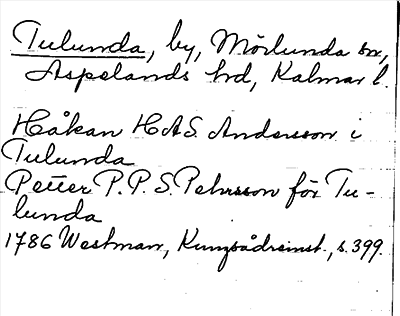 Tulunda, by, Mörlunda sn,
Aspelands hd, Kalmar l.
Håkan H.A.S. Andersson i
Tulunda
Petter P.P.S. Pehrsson för Tu-
lunda
1786 Westman, Kungsådreinst., s. 399.